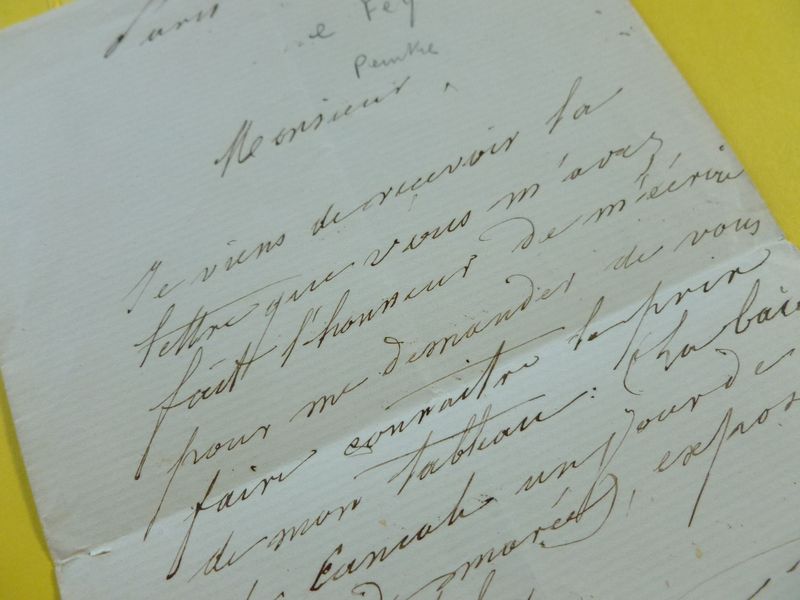 Paris
Peintre
Monsieur,
Je viens de recevoir la
lettre que vous m'avez
fait l'honneur de m'écrire
pour me demander de vous
faire connaître le prix
de mon tableau : (La baie
de Cancale un jour de
marée), expos